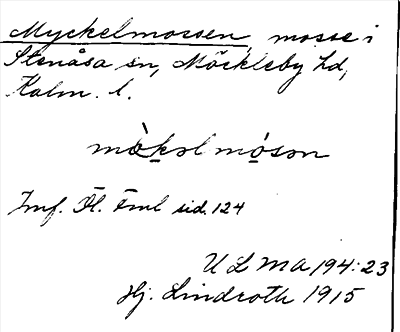 Myckelmossen, mosse i
Stenåsa sn, Möckleby hd,
Kalm. l.
mòkəl móson
Jmf. Öl. Fml sid. 124
ULMA 194:23
Hj. Lindroth 1915